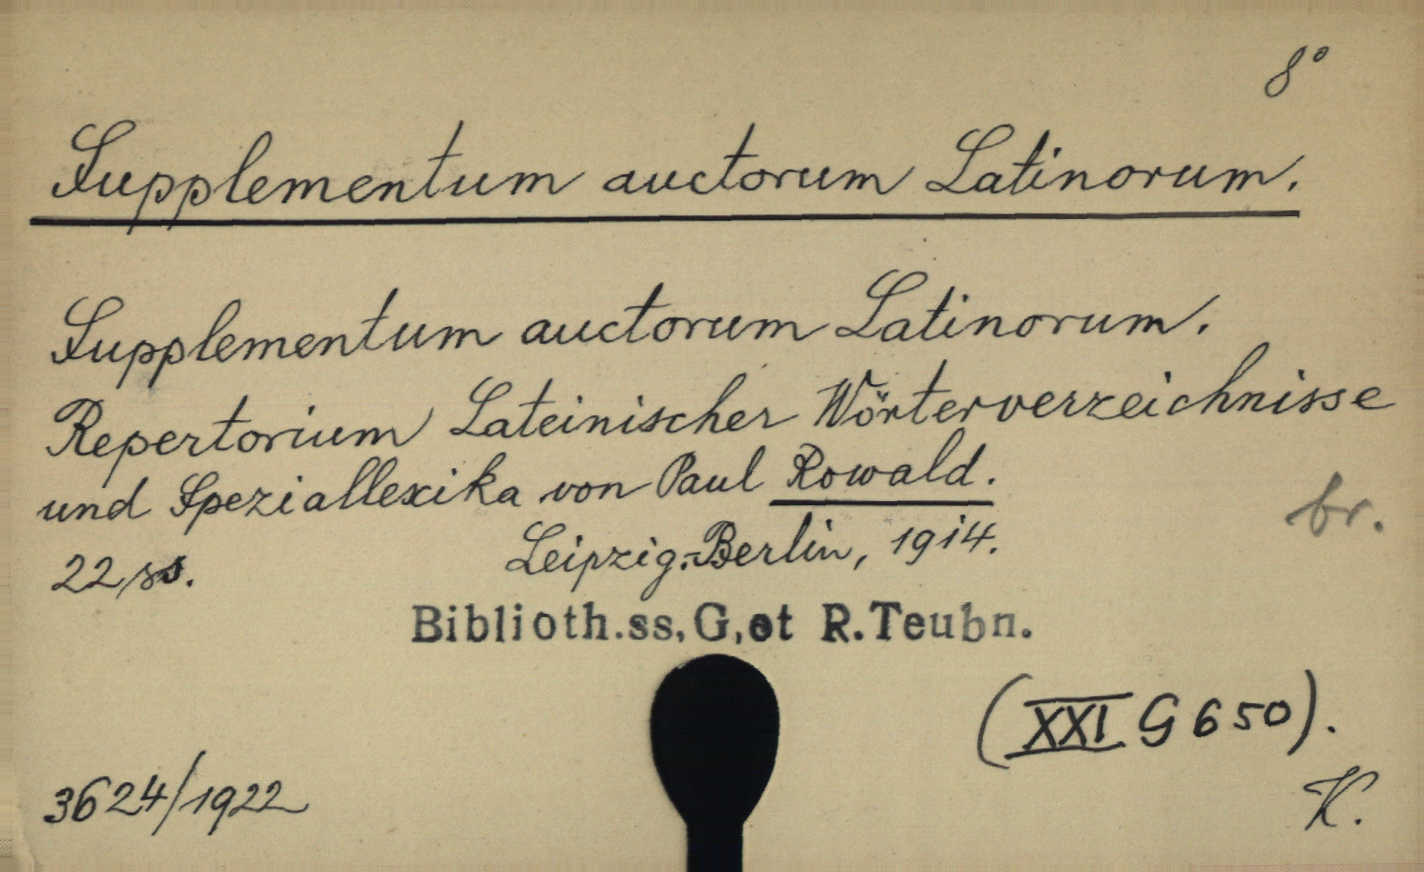 8°
Supplementum auctorum Latinorum.
Supplementum auctorum Latinorum.
Repertorium Lateinischer Wörterverzeichnisse
und Speziallexika von Paul Rowald.
br.
22 ss. Leipzig-Berlin, 1914.
Biblioth.ss,G,et R.Teubn.
(XXI G 650).
3624/1922
K.